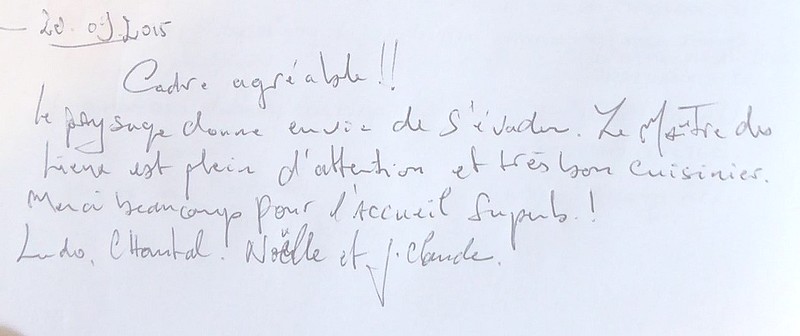 20.09.2015
Cadre agréable !!
Le paysage donne envie de s'évader. Le Maître des
lieux est plein d'attention et très bon cuisinier.
Merci beaucoup pour l'accueil superbe !
Ludo, Chantal. Noëlle et J. Claude.